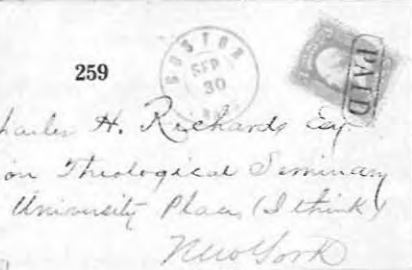 BOSTON
SEP
30
PAID
259
Charles H. Richards Esq
on Theological Seminary
University Place, (I think)
New York